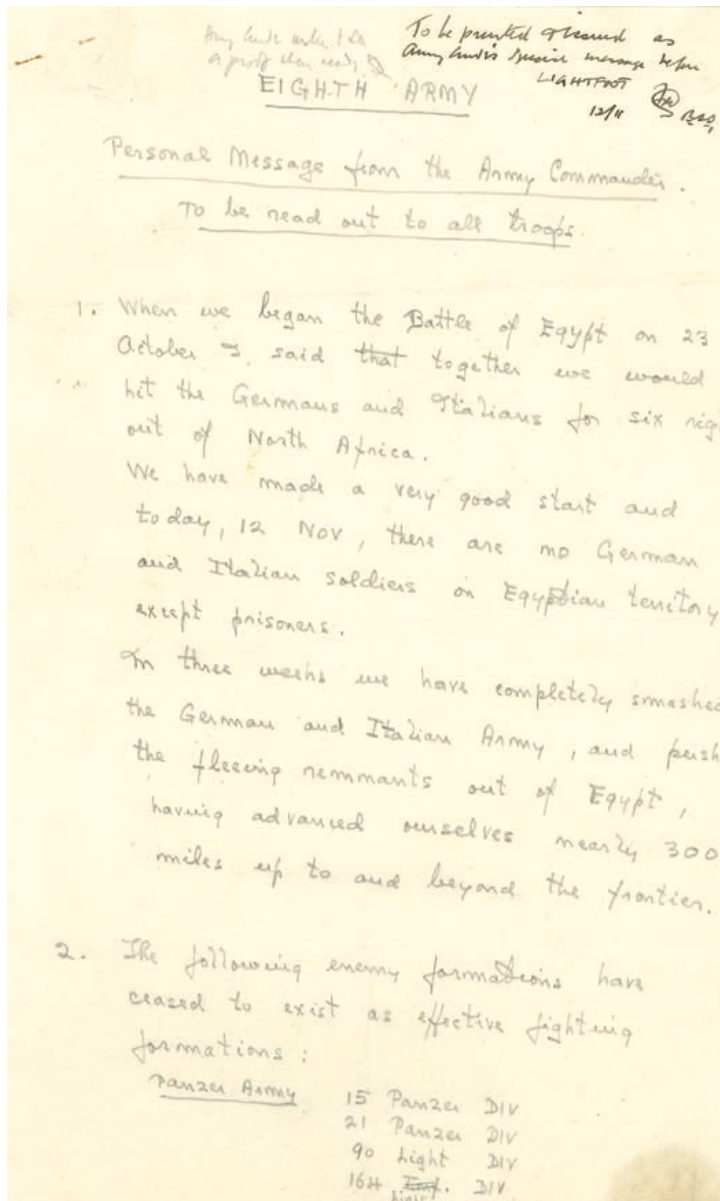 Army Comd wishes to see
a proof when ready
To be printed & issued as
Army Comd's special message before
LIGHTFOOT
12/11
EIGHTH ARMY
Personal Message from the Army Commander.
To be read out to all troops.
1. When we began the Battle of Egypt on 23
October I said that together we would
hit the Germans and Italians for six righ
out of North Africa.
We have made a very good start and
today, 12 Nov, there are no German
and Italian soldiers on Egyptian territory
except prisoners.
In three weeks we have completely smashed
the German and Italian Army, and push
the fleeing remnants out of Egypt,
having advanced ourselves nearly 300
miles up to and beyond the frontier.
2. The following enemy formations have
ceased to exist as effective fighting
formations:
Panzer Army 15 Panzer DIV
21 Panzer DIV
90 Light DIV
164 DIV
Light